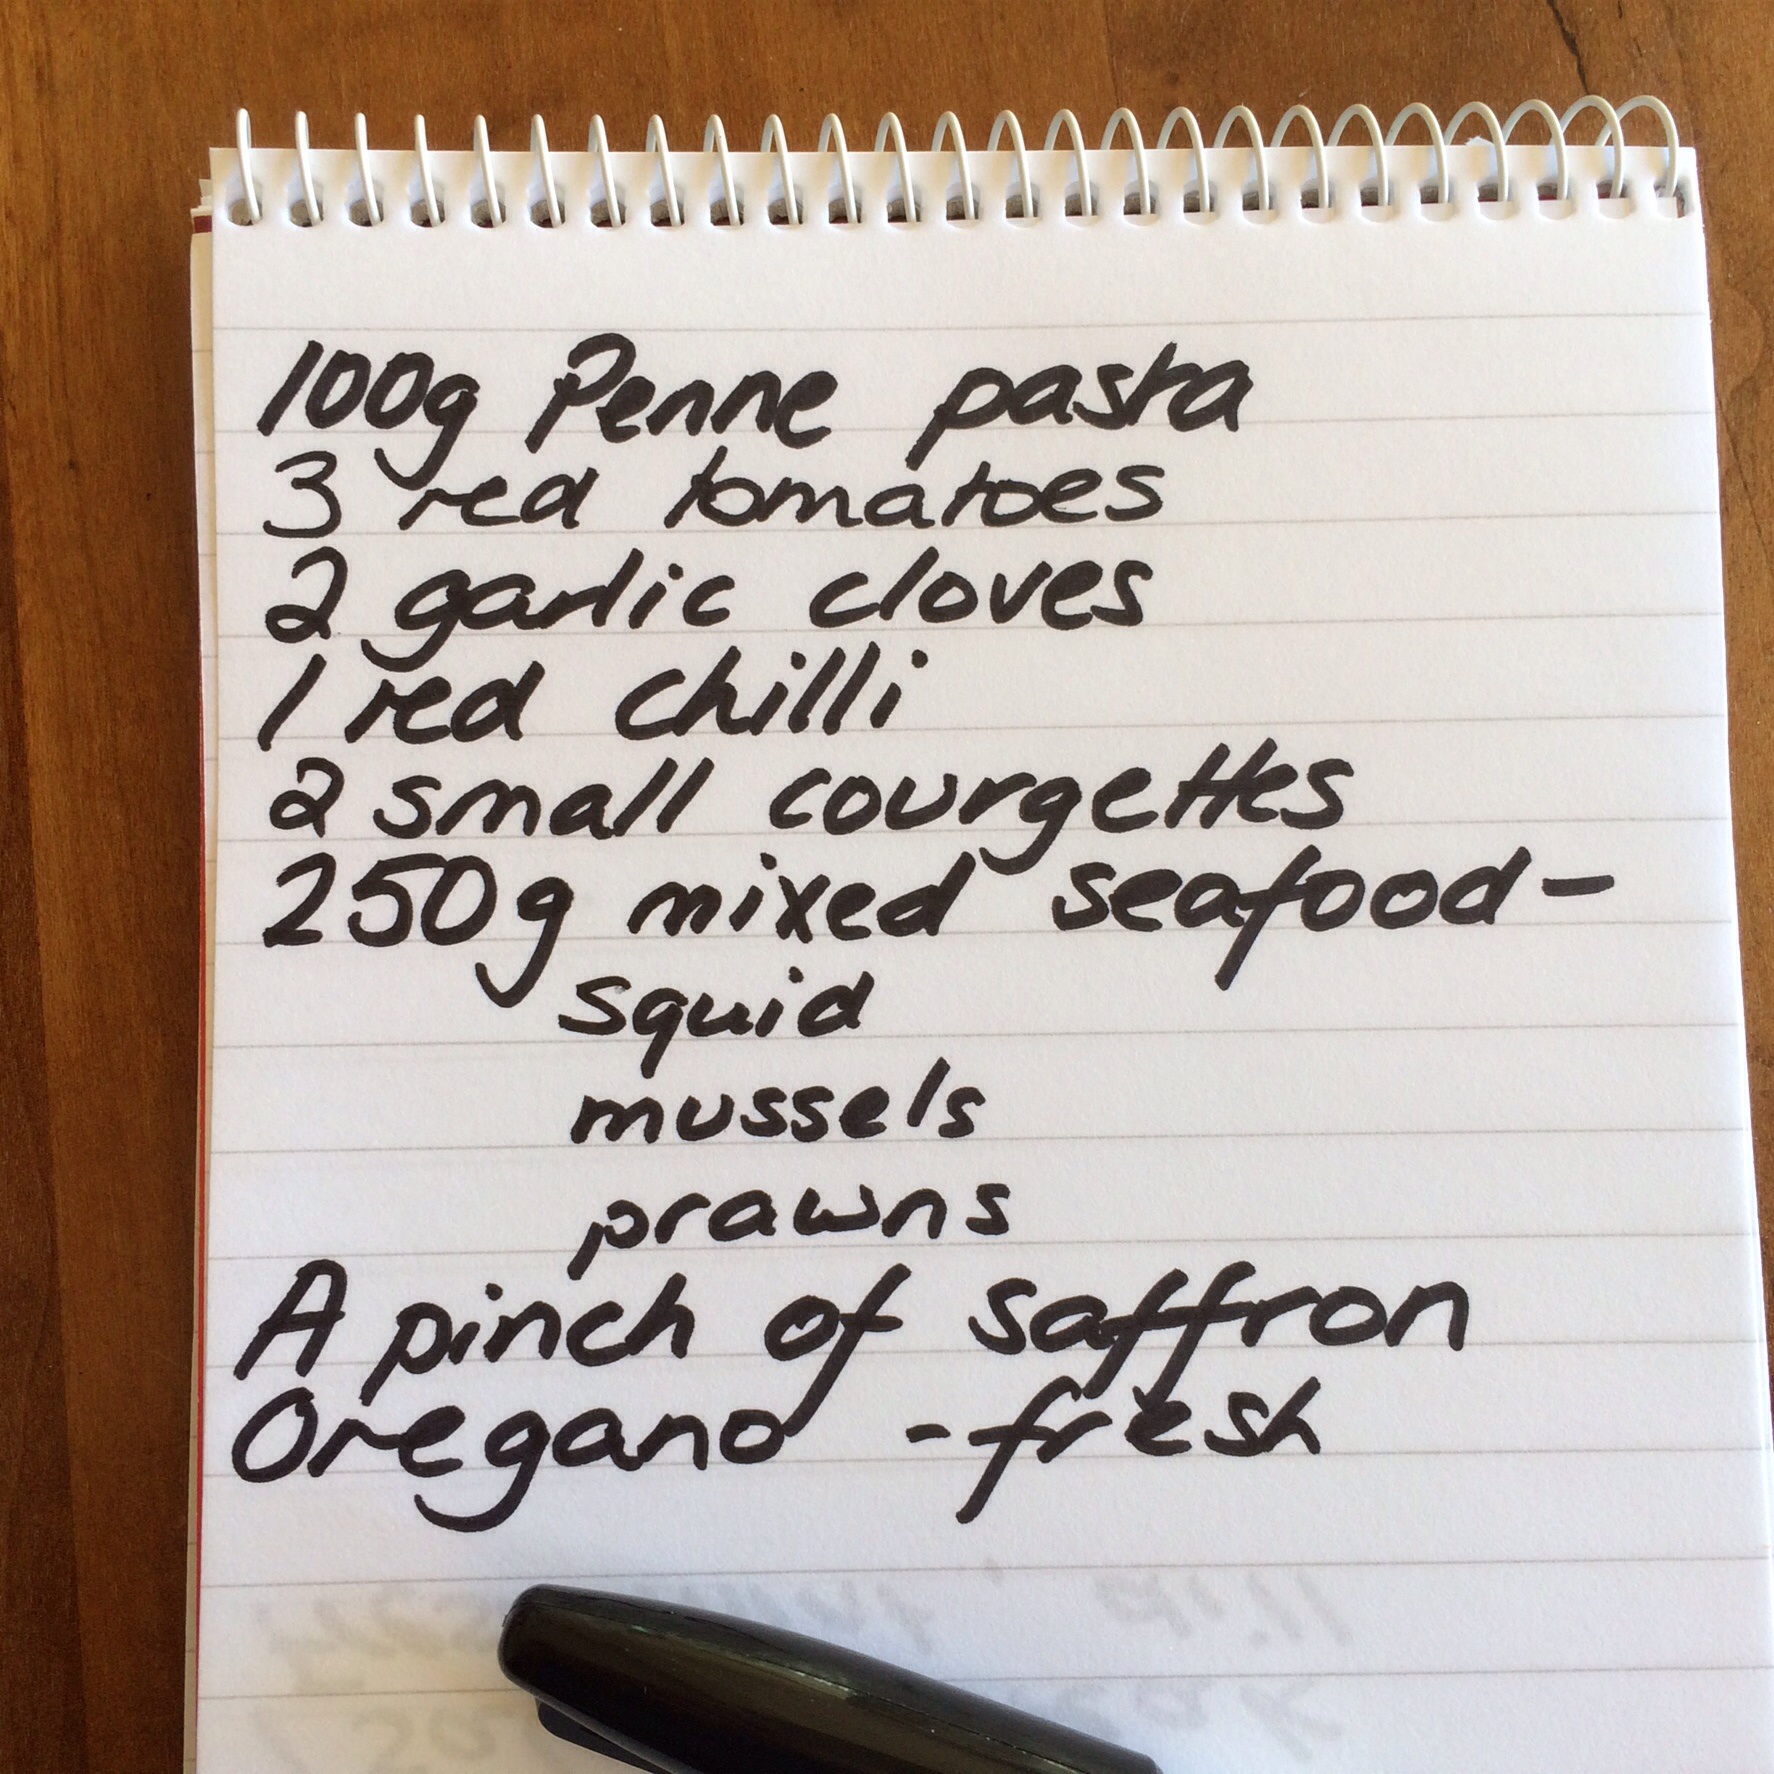 100g Penne pasta
3 red tomatoes
2 garlic cloves
1 red chilli
2 small courgettes
250g mixed seafood-
squid
mussels
prawns
A pinch of saffron
Oregano -fresh